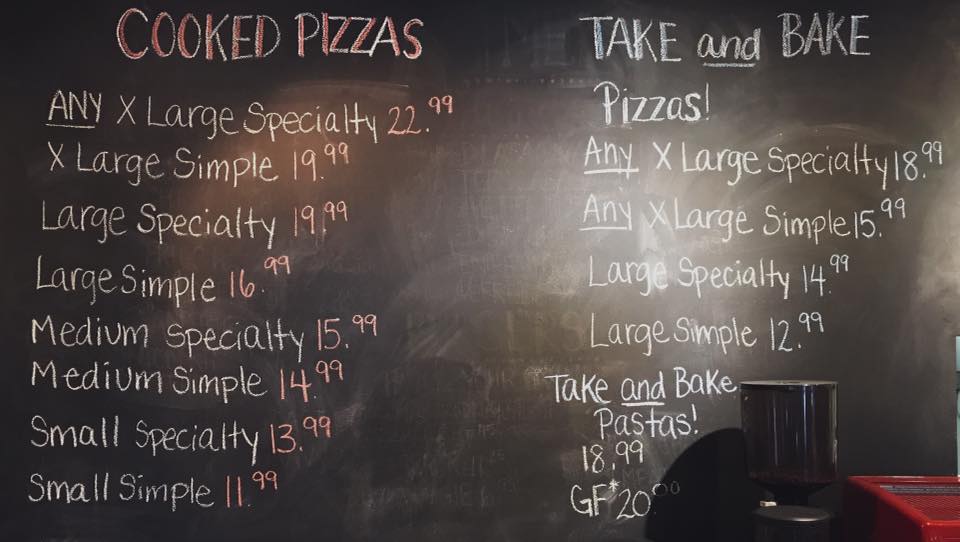 COOKED PIZZAS
ANY X Large Specialty 22.99
X Large Simple 19.99
Large Specialty 19.99
Large Simple 16.99
Medium Specialty 15.99
Medium Simple 14.99
Small Specialty 13.99
Small Simple 11.99
TAKE and BAKE
Pizzas!
Any X Large Specialty 18.99
Any X Large Simple 15.99
Large Specialty 14.99
Large Simple 12.99
Take and Bake
Pastas!
18.99
GF* 20.00